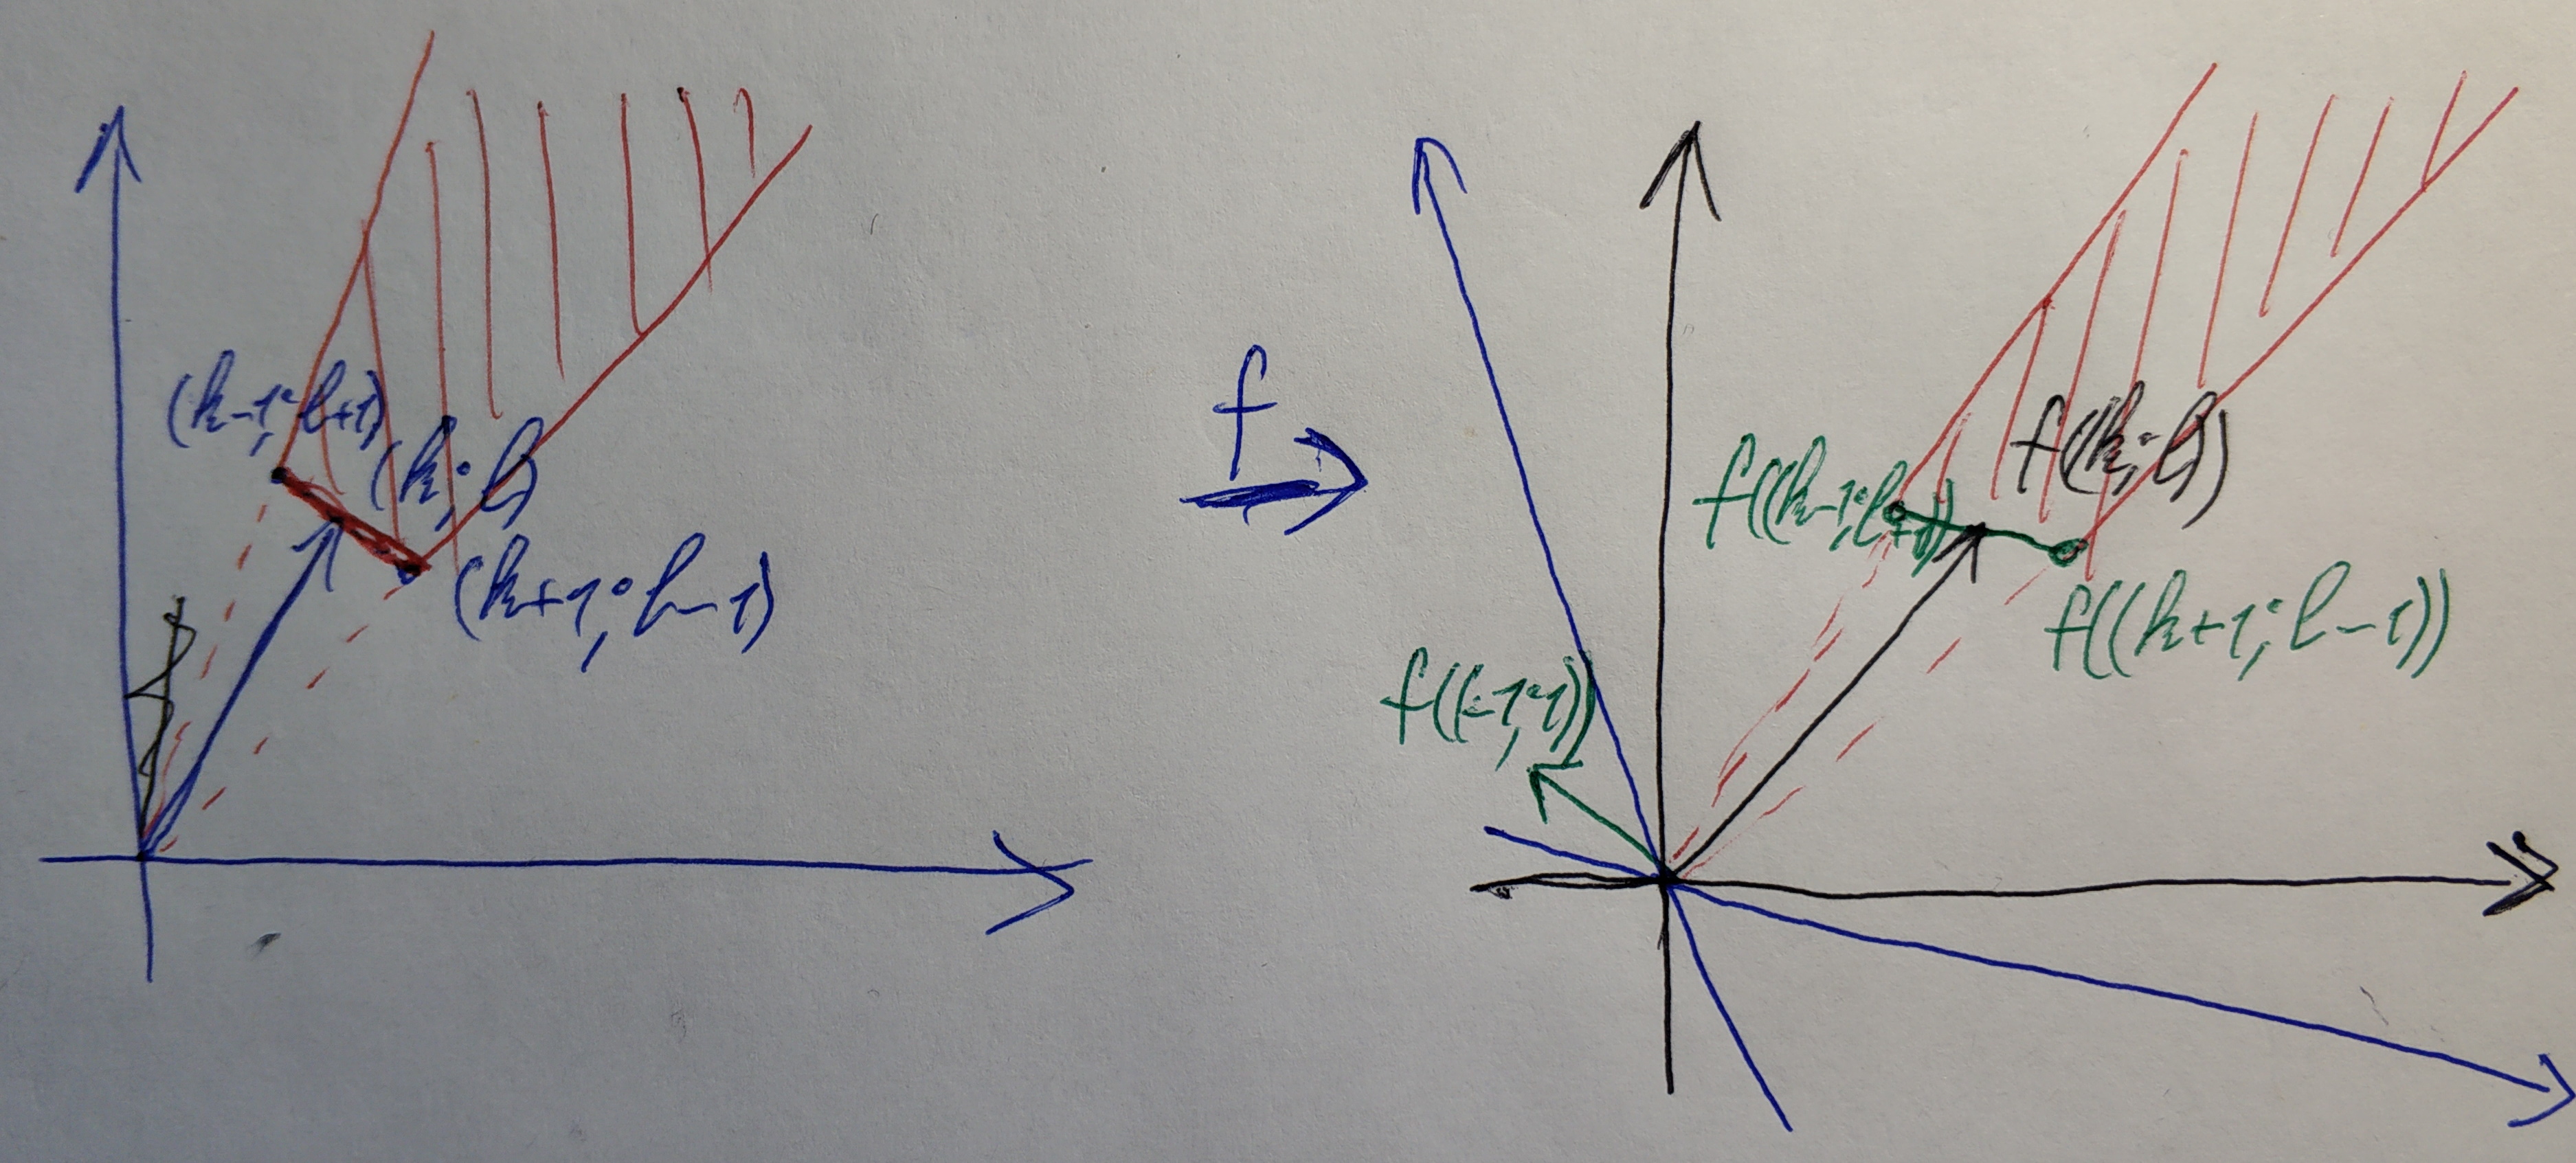 (k-1;l+1)
(k;l)
(k+1;l-1)
f
f((k-1;l+1))
f((k;l))
f((k+1;l-1))
f((-1;1))